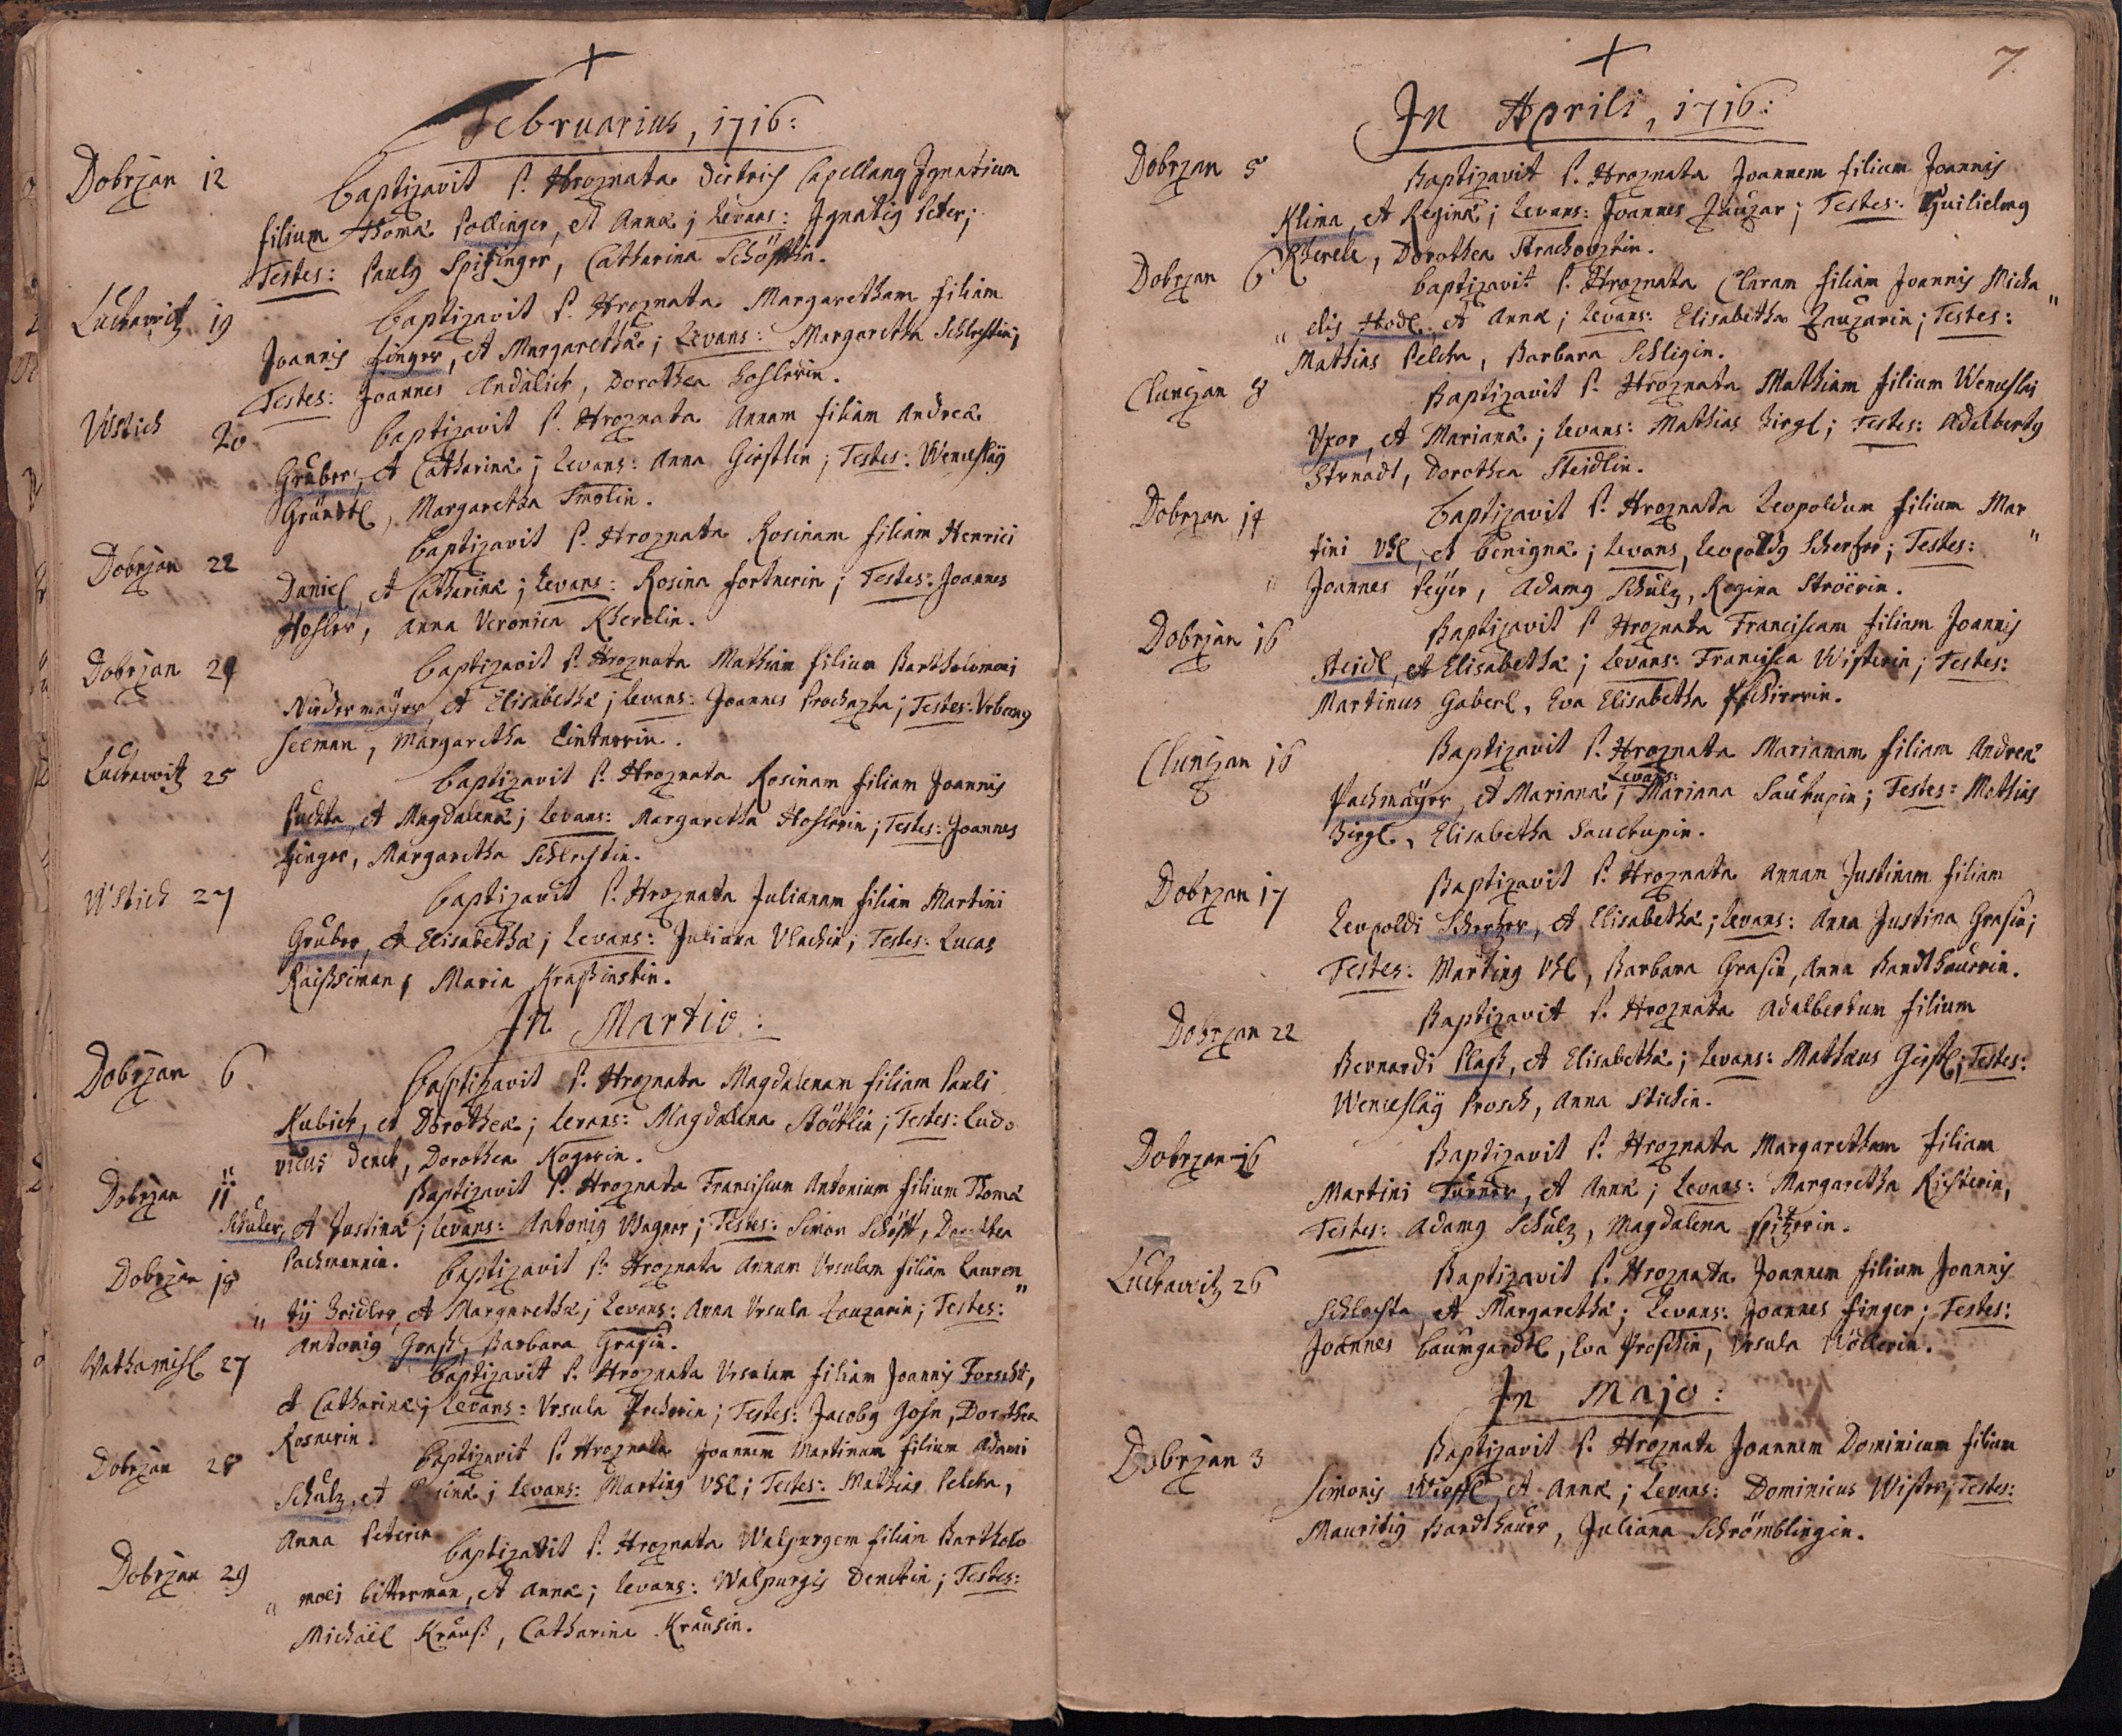 Februarius, 1716:
Dobrzan 12 Baptizavit P. Hroznata Dietrich Capellanꝰ Ignatium
filium Thomæ Pollinger, et Annæ; Levans: Ignatiꝰ Peter;
Testes: Paulꝰ Spisinger, Catharina Schöpkin.
Luckawitz 19 Baptizavit P. Hroznata Margaretham filiam
Joannis Finger, et Margarethæ; Levans: Margaretha Schlestin;
Testes: Joannes Andalick, Dorothea Hoslerin.
Wstich 20 Baptizavit P. Hroznata Annam filiam Andreæ
Gruber, et Catharinæ; Levans: Anna Gierstlin; Testes: Wenceslaꝰ
Gründtl, Margaretha Smolin.
Dobrzan 22 Baptizavit P. Hroznata Rosinam filiam Henrici
Daniel, et Catharinæ; Levans: Rosina Fortnerin; Testes: Joannes
Hosler, Anna Veronica Kherelin.
Dobrzan 24 Baptizavit P. Hroznata Mathiam filium Bartholomæi
Nidermayer, et Elisabethæ; Levans: Joannes Prochazka; Testes: Urbanꝰ
Seeman, Margaretha Lintnerin.
Luckawitz 25 Baptizavit P. Hroznata Rosinam filiam Joannis
Puchta, et Magdalenæ; Levans: Margaretha Hoslerin; Testes: Joannes
Finger, Margaretha Schlestin.
Wstich 27 Baptizavit P. Hroznata Julianam filiam Martini
Gruber, et Elisabethæ; Levans: Juliana Vlachin; Testes: Lucas
Raisseman, Maria Krassinstin.
In Martio:
Dobrzan 6 Baptizavit P. Hroznata Magdalenam filiam Pauli
Kubick, et Dorotheæ; Levans: Magdalena Stöcklin; Testes: Ludo
vicus Denck, Dorothea Kogerin.
Dobrzan 11 Baptizavit P. Hroznata Franciscum Antonium filium Thomæ
Schuler, et Justinæ; Levans: Antoniꝰ Wagner; Testes: Simon Schöpff, Dorothea
Pachmannin.
Dobrzan 18 Baptizavit P. Hroznata Annam Ursulam filiam Lauren
"tij Bridler, et Margarethæ; Levans: Anna Ursula Zauzarin; Testes:"
Antoniꝰ Grass, Barbara Grasin.
Wathamisl 27 Baptizavit P. Hroznata Ursulam filiam Joannis Forscht,
et Catharinæ; Levans: Ursula Pecherin; Testes: Jacobꝰ Josn, Dorothea
Rosnerin.
Dobrzan 28 Baptizavit P. Hroznata Joannem Martinum filium Adami
Schulz, et Reginæ; Levans: Martinꝰ Uhl; Testes: Mathias Pelcka,
Anna Peterin
Dobrzan 29 Baptizavit P. Hroznata Walpurgem filiam Bartholo
"mæi Bitterman, et Annæ; Levans: Walpurgis Denckin; Testes:
Michaël Krauss, Catharina Krausin.
7.
In Aprili, 1716:
Dobrzan 5 Baptizavit P. Hroznata Joannem filium Joannis
Klima, et Reginæ; Levans: Joannes Zauzar; Testes: Guilielmꝰ
Kherele, Dorothea Strachowztin.
Dobrzan 6 Baptizavit P. Hroznata Claram filiam Joannis Micha"
"elis Hodl, et Annæ; Levans: Elisabetha Zauzarin; Testes:
Mathias Pelcka, Barbara Schligin.
Chlunczan 8 Baptizavit P. Hroznata Mathiam filium Wenceslai
Upor, et Marianæ; Levans: Mathias Zirgl; Testes: Adalbertꝰ
Strnadt, Dorothea Steidlin.
Dobrzan 14 Baptizavit P. Hroznata Leopoldum filium Mar"
tini Uhl, et Benignæ; Levans, Leopoldꝰ Scherfer; Testes:
"Joannes Peyer, Adamꝰ Schulz, Regina Ströerin.
Dobrzan 16 Baptizavit P. Hroznata Franciscam filiam Joannis
Steidl, et Elisabethæ; Levans: Francisca Wisterin; Testes:
Martinus Gaberl, Eva Elisabetha Pschirerin.
Chlunczan 16 Baptizavit P. Hroznata Marianam filiam Andreæ
8 Pachmayer, et Marianæ; Levans: Mariana Saukupin; Testes: Mathias
Zirgl, Elisabetha Sauckupin.
Dobrzan 17 Baptizavit P. Hroznata Annam Justinam filiam
Leopoldi Scherfer, et Elisabethæ; Levans: Anna Justina Grasin;
Testes: Martinꝰ Uhl, Barbara Grasin, Anna Bandthauerin.
Dobrzan 22 Baptizavit P. Hroznata Adalbertum filium
Bernardi Plass, et Elisabethæ; Levans: Mathæus Gierstl; Testes:
Wenceslaꝰ Prosch, Anna Stichin.
Dobrzan 26 Baptizavit P. Hroznata Margaretham filiam
Martini Turner, et Annæ; Levans: Margaretha Richterin,
Testes: Adamꝰ Schulz, Magdalena Spitzerin.
Luckawitz 26 Baptizavit P. Hroznata Joannem filium Joannis
Schlechta, et Margarethæ; Levans: Joannes Finger; Testes:
Joannes Baumgardtl, Eva Proschin, Ursula Köllerin.
In Majo:
Dobrzan 3 Baptizavit P. Hroznata Joannem Dominicum filium
Simonis Wirffl, et Annæ; Levans: Dominicus Wister, Testes:
Mauritiꝰ Bandthauer, Juliana Schrömblingin.